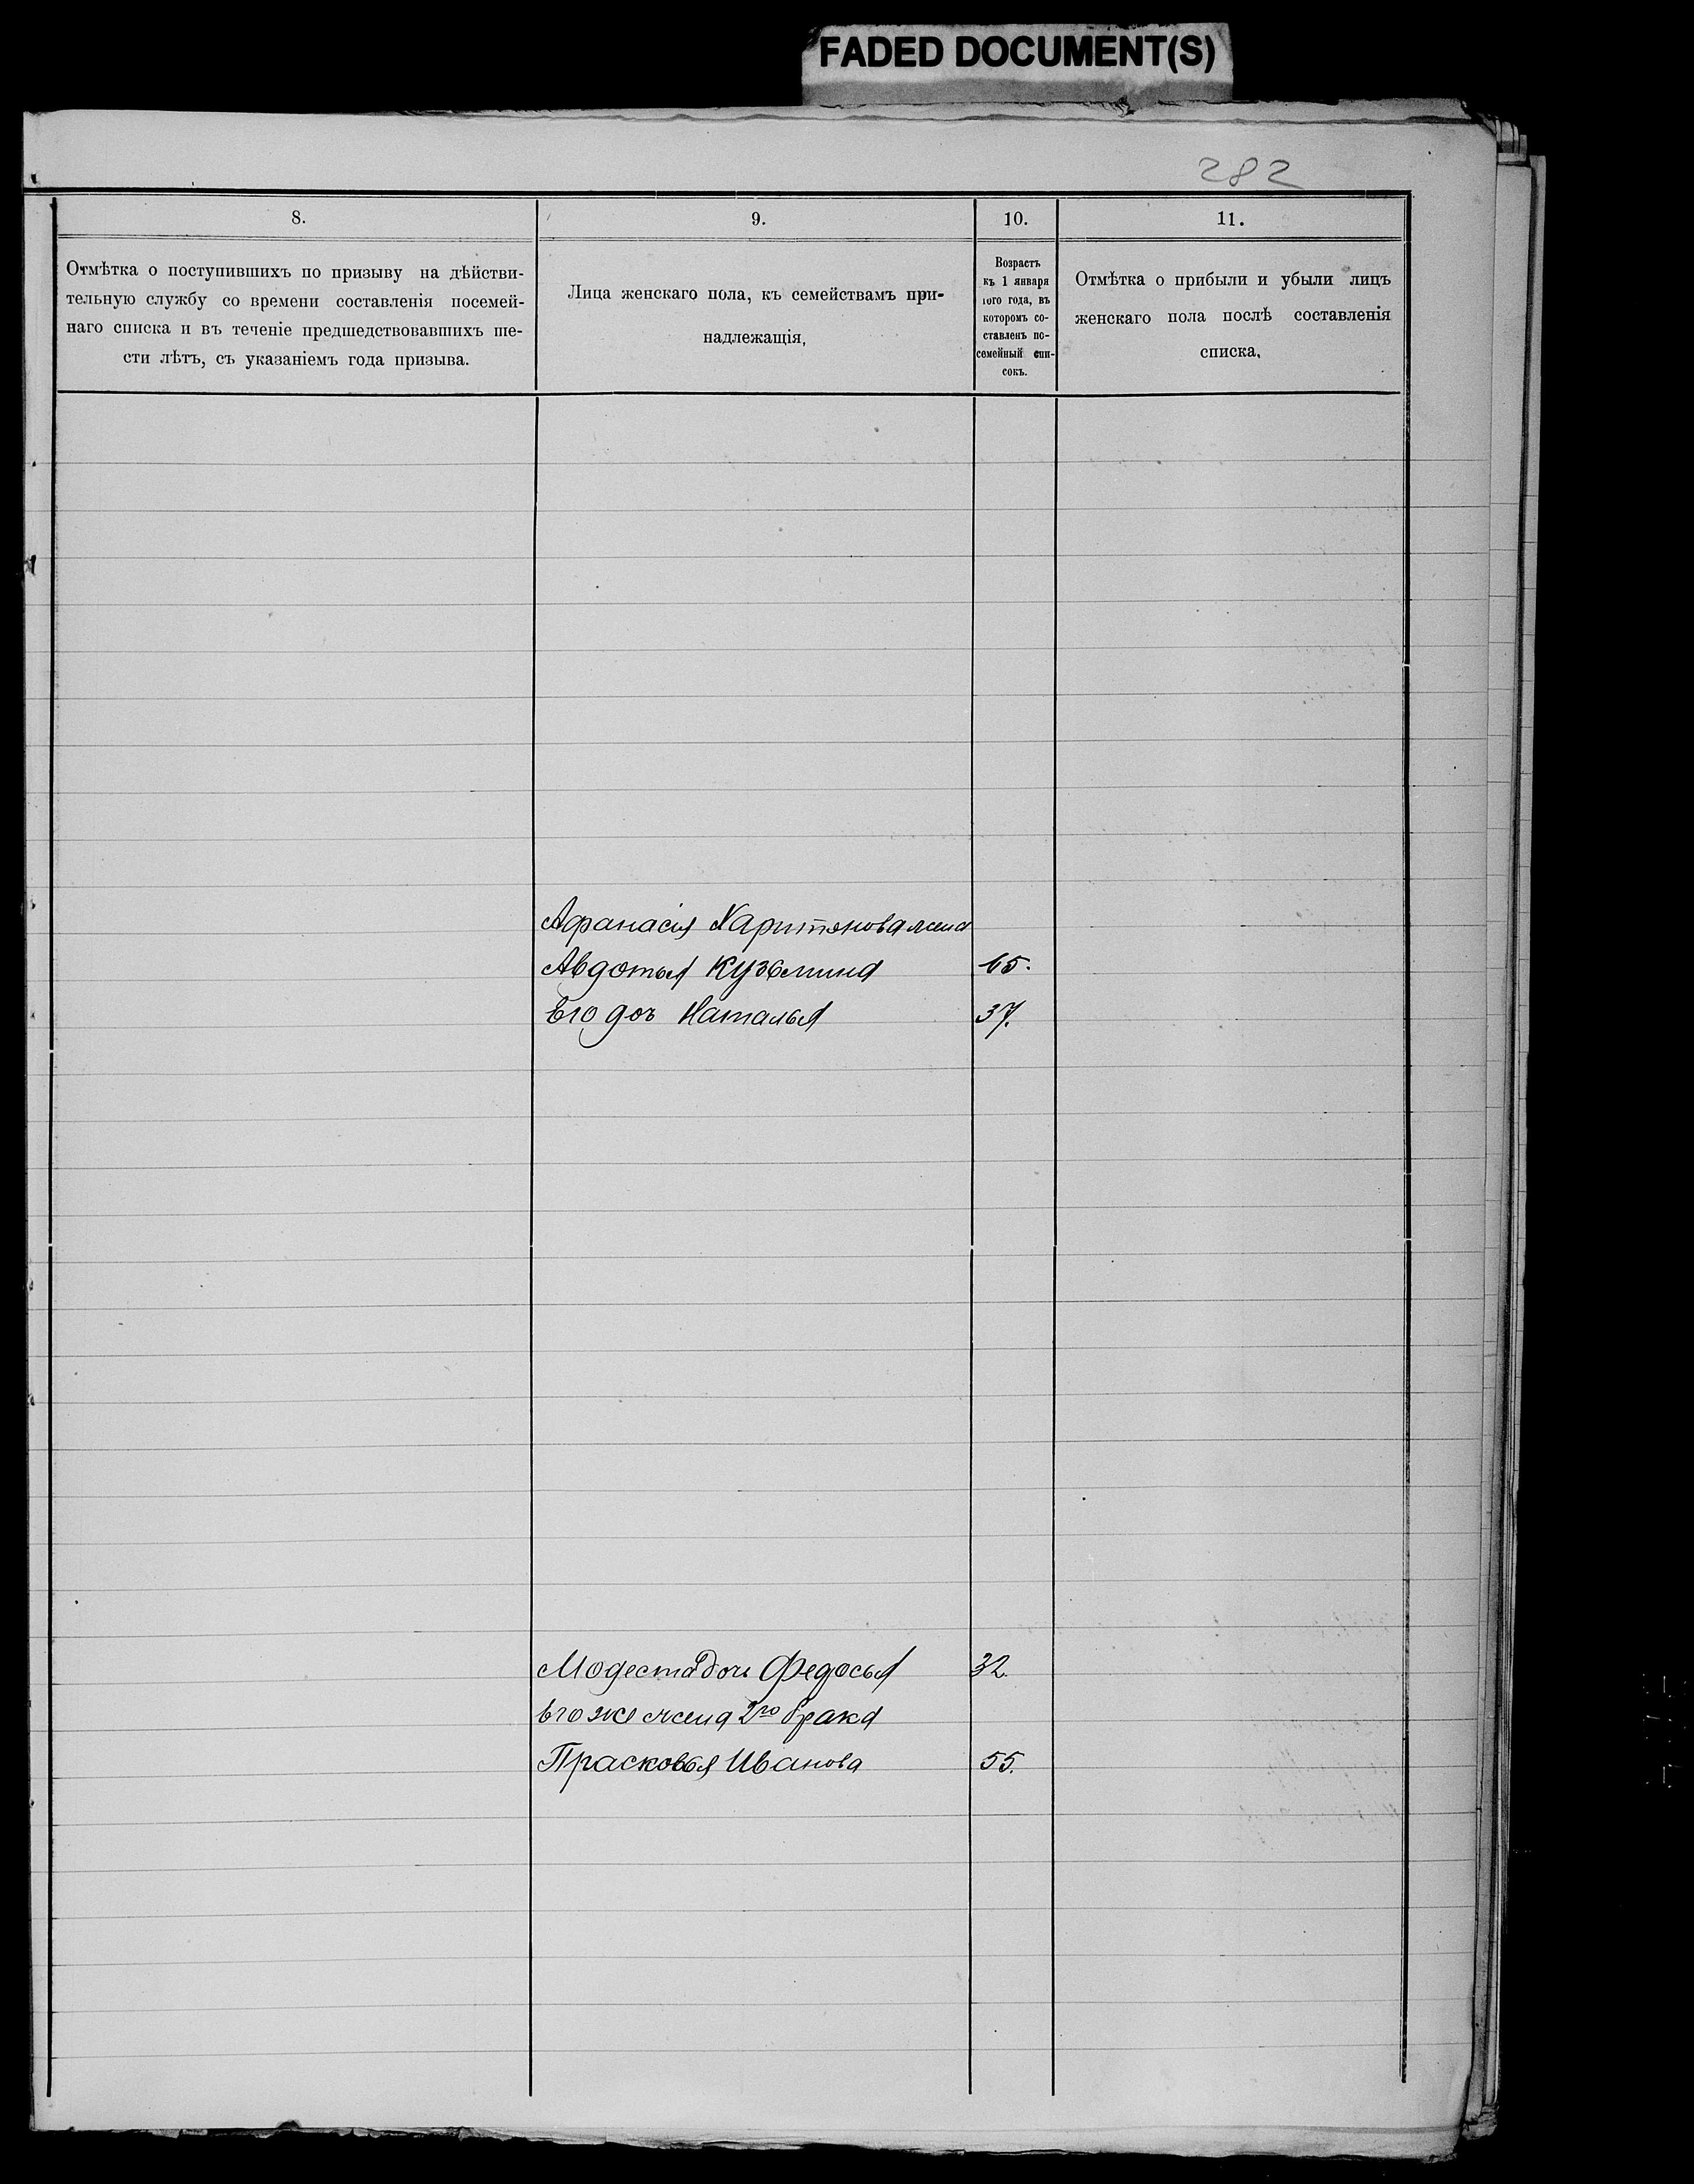 FADED DOCUMENT(S)
282
8.
Отмѣтка о поступившихъ по призыву на дѣйстви-
тельную службу со времени составленія посемей-
наго списка и въ теченіе предшедствовавшихъ ше-
сти лѣтъ, съ указаніемъ года призыва.
9.
Лица женскаго пола, къ семействамъ при-
надлежащія,
10.
Возрастъ
къ 1 января
того года, въ
которомъ со-
ставленъ по-
семейный спи-
сокъ.
11.
Отмѣтка о прибыли и убыли лицъ
женскаго пола послѣ составленія
списка,
Афанасія Харитонова жена
Авдотья Кузьмина 65.
Его доч Наталья 37.
Модеста дочь Федосья 32.
Его же жена 2го брака
Прасковья Иванова 55.